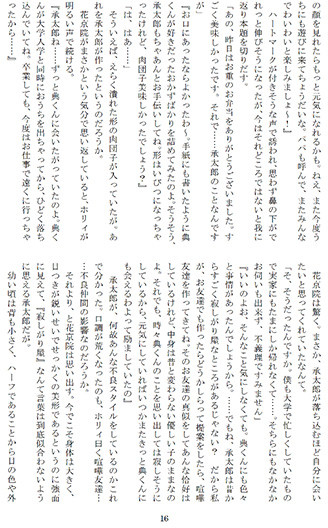 の顔を見れたらもっと元気になれるかもね。ねえ、また今度う
ちにも遊びに来てちょうだいな。パパも呼んで、またみんな
でわいわいと楽しみましょ〜！』
　ハートマークが付きそうな声で誘われ、思わず鼻の下がで
れっと伸びそうになったが、今はそれどころではないと我に
返り本題を切りだす。
「あの、昨日はお重のお弁当をありがとうございました。す
ごく美味しかったです。それで……承太郎のことなんです
が」
『お口にあったならよかったわ〜。手紙にも書いたように典
くんが好きだったおかずばかりを詰めてみたのよ。そうそう、
承太郎もちゃあんとお手伝いしてね。形はいびつになっちゃ
ったけれど、肉団子美味しかったでしょう？』
「は、はあ…」
　そういえばえらく潰れた形の肉団子が入っていたが、あ
れを承太郎が作ったというのだろうか。
　花京院がまさかという気分で思い返していると、ホリィが
明るい声で続ける。
『承太郎ね……ずっと典くんに会いたがっていたのよ。典く
んが大学入学と同時におうちを出ちゃってから、ひどく落ち
込んでいてねえ。卒業しても、今度はお仕事で遠くに行っちゃ
ったから……』
　花京院は驚く。まさか、承太郎が落ち込むほど自分に会い
たいと思ってくれていたなんて。
「そ、そうだったんですか。僕も大学で忙しくしていたもの
で実家にもたまにしか帰れなくて……そちらにもなかなか
お伺いも出来ず、不義理ですみません」
『いいのよお、そんなこと気にしなくても。典くんにも色々
と事情があったんでしょうから。……でもね、承太郎は昔か
らすごく寂しがり屋なところがあるじゃない？　だから私
が、お友達でも作ったらどうかしらって提案をしたら、喧嘩
友達を作ってきてね。そのお友達の真似をしてあんな恰好は
しているけれど、中身は昔と変わらない優しい子のままなの
よ。それでも、時々典くんのことを思い出しては寂しそうに
しているから、元気にしていればいつかまたきっと典くんに
も会えるわよって励ましていたの』
　承太郎が、何故あんな不良スタイルをしているのかこれ
で分かった。口調が荒くなったのも、ホリィ曰く喧嘩友達…
…不良仲間の影響なのだろうか。
　それより、と花京院は思い出す。今でこそ身体は大きく、
目つきが鋭いせいでせっかくの美形であるというのに強面
に見えて、「寂しがり屋」なんて言葉は到底似合わないよう
に思える承太郎だが。
　幼い頃は背も小さく、ハーフであることから目の色や外
16